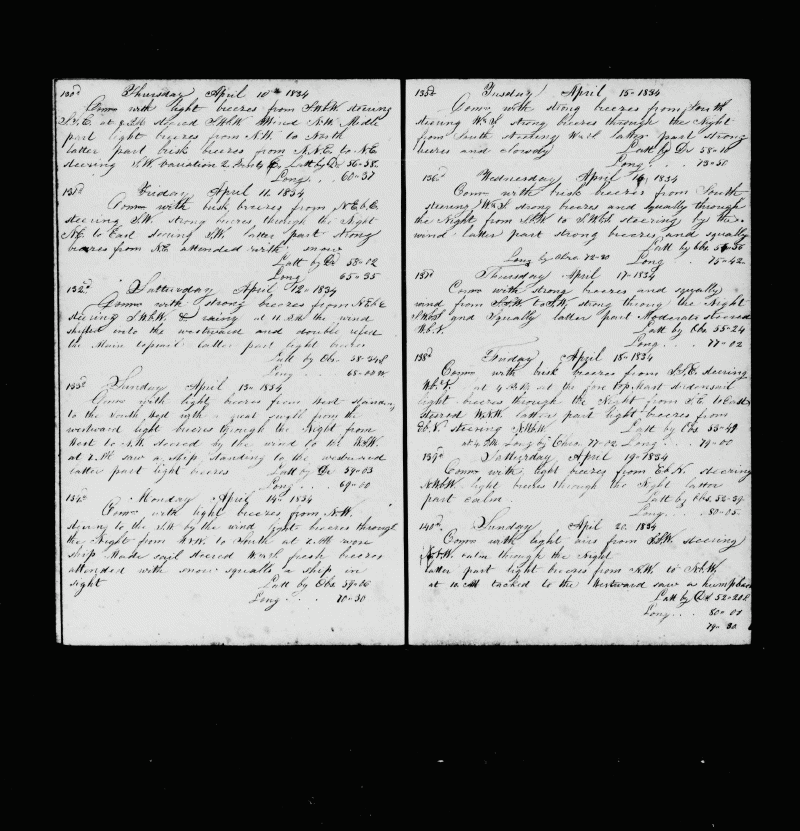 130d Thursday April 10th 1834
Coms with light breezes from SWbW steering
S.b.E. at 8 P.M. steered SWbW Wind N.W. Midle
part light breezes from N.W. to North
latter part brisk breezes from N.N.E. to N.E.
steering S.W. variation 2 Points E. Latt by Dr 56-38
Long . . 60-37
131d Friday April 11. 1834
Coms with brisk breezes from N.E.b.E.
steering S.W. strong breezes through the Night
N.E. to East steering S.W. latter part strong
breezes from N.E. attended with snow
Latt by Dr 58-02
Long 65-35
132d Satturday April 12th 1834
Coms with strong breezes from N.E.b.E
steering S.W.b.W. & rainy at 11 P.M. the wind
shifted into the westward and double reefed
the Main topsail latter part light breezes
Latt by Obs 58-54 S
Long . . 68-00 W
133d Sunday April 13th 1834
Coms with light breezes from West standing
to the South West with a great swell from the
westward light breezes through the Night from
West to N.W. steered by the wind to the W.S.W.
at 2. PM saw a ship standing to the westward
latter part light breezes Latt by Dr 59-03
Long . . 69-00
134d Monday April 14th 1834
Coms with light breezes from N.W.
steering to the S.W. by the wind light breezes through
the Night from W.N.W. to South at 2. AM wore
ship Made sail steered W.b.S. fresh breezes
attended with snow squalls a ship in
sight Latt by Obs 59-06
Long . . . 70-30
135d Tusday April 15th 1834
Coms with strong breezes from South
steering W.b.S strong breezes through the Night
from South steering W.b.S latter part strong
breezes and cloudy Latt by Dr 58-10
Long . . 73-50
136d Wednesday April 16, 1834
Coms with brisk breezes from South
steering W.b.S strong breezes and squally through
the Night from S.S.W. to S.W.b.S steering by the
wind latter part strong breezes and squally
Latt by Obs 56-36
Long by Chro 72-20 Long . . 75-42
137d Thursday April 17th 1834
Coms with strong breezes and squally
wind from S.S.W. to S.W. strong throug the Night
S.W.b.S and Squally latter part Moderate steered
W.b.N. Latt by Obs 55-24
Long . . 77-02
138d Friday April 18th 1834
Coms with brisk breezes from S.S.E. steering
W.b.N. at 4 P.M. set the fore topMast studensail
light breezes through the Night from S.E. to East
steered W.N.W. latter part light breezes from
E.b.N. steering N.W.b.W Latt by Obs 53-49
at 4. PM Long by Chro 77-02 Long . . 79-00
139d Satturday April 19th 1834
Coms with light breezes from E.b.N. steering
N.W.b.W. light breezes through the Night latter
part calm Latt by Obs. 52-39
Long . . 80-05
140d Sunday April 20. 1834
Coms with light airs from S.S.W. steering
N.N.W. calm through the Night
latter part light breezes from N.W. to N.b.W.
at 10 AM tacked to the Westward saw a humpback
Latt by Dr 52-20 S
Long . . . 80-00
79-30